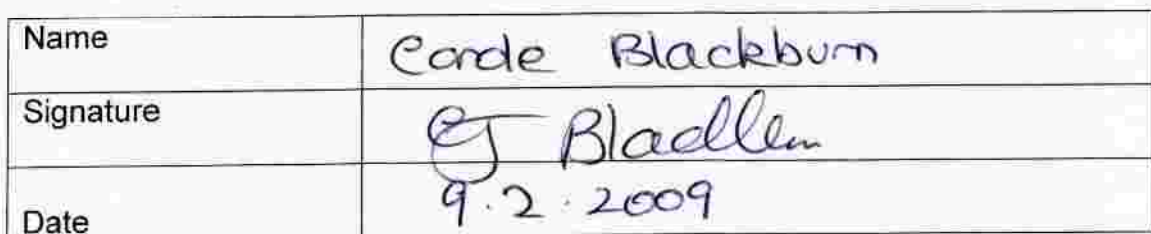 Name Carole Blackburn
Signature CJ Blackburn
Date 9.2.2009